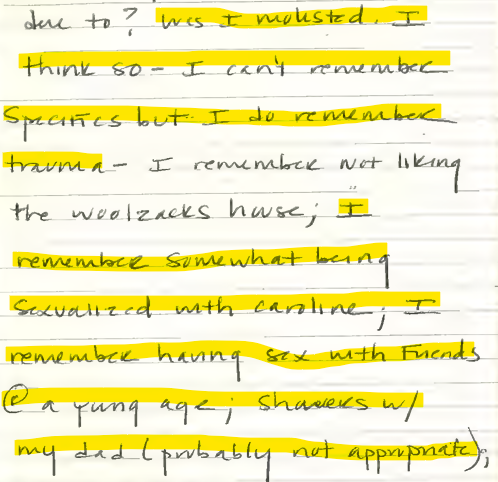 due to? Was I molested. I
think so - I can't remember
Specifics but I do remember
trauma - I remember not liking
the woolzacks house; I
remember somewhat being
sexualized with caroline; I
remember having sex with Friends
@ a yung age; showers w/
my dad (probably not appropriate);